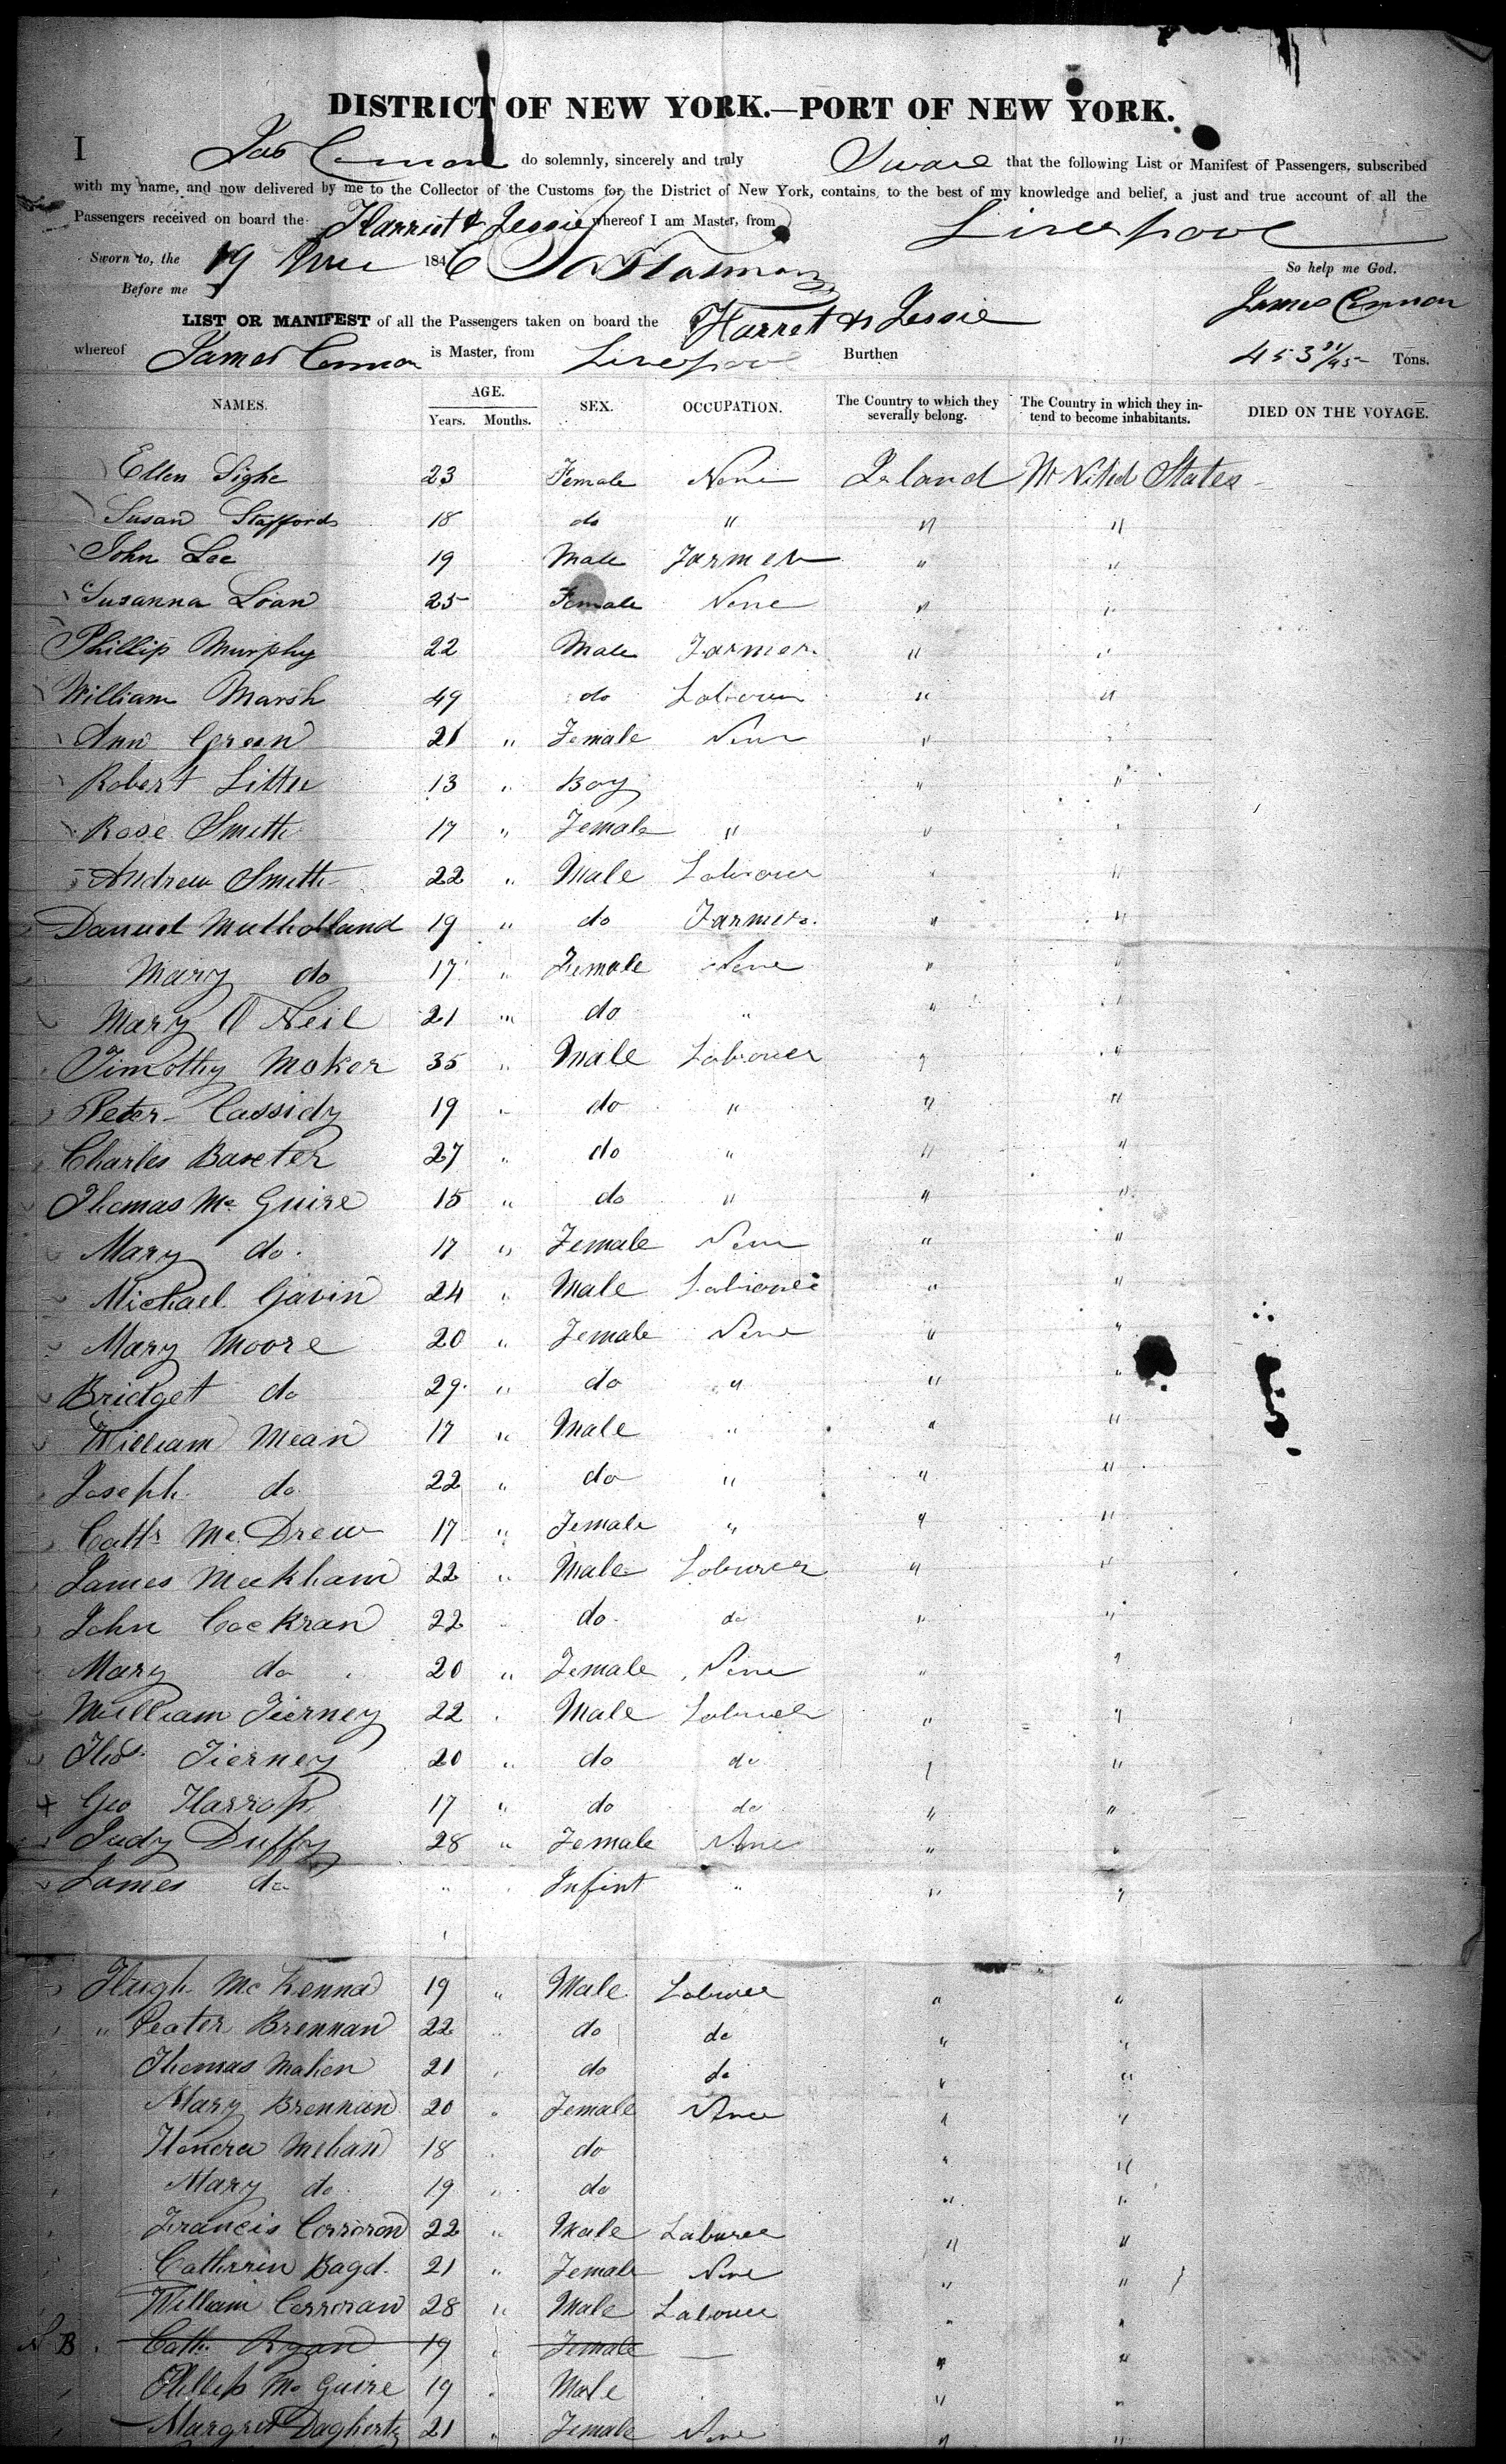 DISTRICT OF NEW YORK.—PORT OF NEW YORK.
I Jas do solemnly, sincerely and truly Sware that the following List or Manifest of Passengers, subscribed
with my name, and now delivered by me to the Collector of the Customs for the District of New York, contains, to the best of my knowledge and belief, a just and true account of all the
Passengers received on board the Harriet & Jessie whereof I am Master, from Liverpool
Sworn to, the 19 1846 So help me God.
Before me James Cennon
LIST OR MANIFEST of all the Passengers taken on board the Harret & Jessie
whereof James Cennon is Master, from Liverpool Burthen 453 91/95 Tons.
NAMES. AGE. Years. Months. SEX. OCCUPATION. The Country to which they severally belong. The Country in which they intend to become inhabitants. DIED ON THE VOYAGE.
Ellen Sighe 23 Female None United States
Susan Stafford 18 do " " "
John Lee 19 Male Farmer " "
Susanna Loan 25 Female None " "
Phillip Murphy 22 Male Farmer " "
William Marsh 49 do Labourer " "
Ann Green 21 " Female None " "
Robert Little 13 " Boy " "
Rose Smith 17 " Female " " "
Andrew Smith 22 " Male Labourer " "
Daniel Mulholland 19 " do Farmer " "
Mary do 17 " Female None " "
Mary O Neil 21 " do " " "
Timothy Moker 35 " Male Labourer " "
Peter Cassidy 19 " do " " "
Charles Baxter 27 " do " " "
Thomas Mc Guire 15 " do " " "
Mary do 17 " Female None " "
Michael Gavin 24 " Male Labourer " "
Mary Moore 20 " Female None " "
Bridget do 29 " do " " "
William Mean 17 " Male " " "
Joseph do 22 " do " " "
Cath Mc Drew 17 " Female " " "
James Meekham 22 " Male Labourer " "
John Cockran 22 " do do " "
Mary do 20 " Female None " "
William Tierney 22 " Male Labourer " "
Thos Tierney 20 " do do " "
Geo Harrop 17 " do do " "
Judy Duffy 28 " Female None " "
James do " " Infint " " "
Hugh Mc Kenna 19 " Male Labourer " "
" Peater Brennan 22 " do do " "
Thomas Mahen 21 " do do " "
Mary Brennan 20 " Female None " "
Honora Mehan 18 " do " "
Mary do 19 " do " "
Francis Corroron 22 " Male Laburer " "
Catherin Bagd 21 " Female None " "
William Corroran 28 " Male Labourer " "
N B. Cath Ryan 19 " Female — " "
Phillip Mc Guire 19 " Male " "
Margret Dagherty 21 " Female None " "